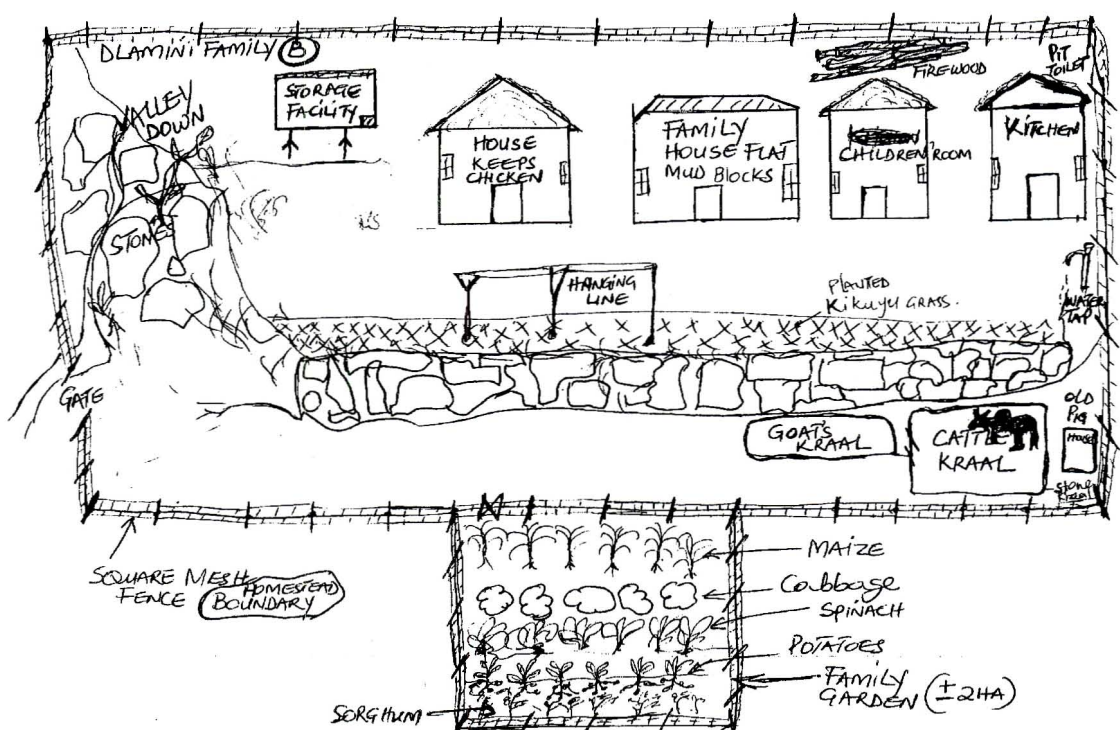 DLAMINI FAMILY B
PIT
TOILET
FIREWOOD
STORAGE
FACILITY
VALLEY
DOWN
HOUSE
KEEPS
CHICKEN
FAMILY
HOUSE FLAT
MUD BLOCKS
CHILDREN'ROOM
KITCHEN
STONES
HANGING
LINE
PLANTED
KIKUYU GRASS.
WATER
TAP
GATE
GOAT'S
KRAAL
CATTLE
KRAAL
OLD
PIG
HOUSE
STONE
KRAAL
SQUARE MESH
FENCE
HOMESTEAD
BOUNDARY
MAIZE
Cabbage
SPINACH
POTATOES
FAMILY
GARDEN (±2HA)
SORGHUM